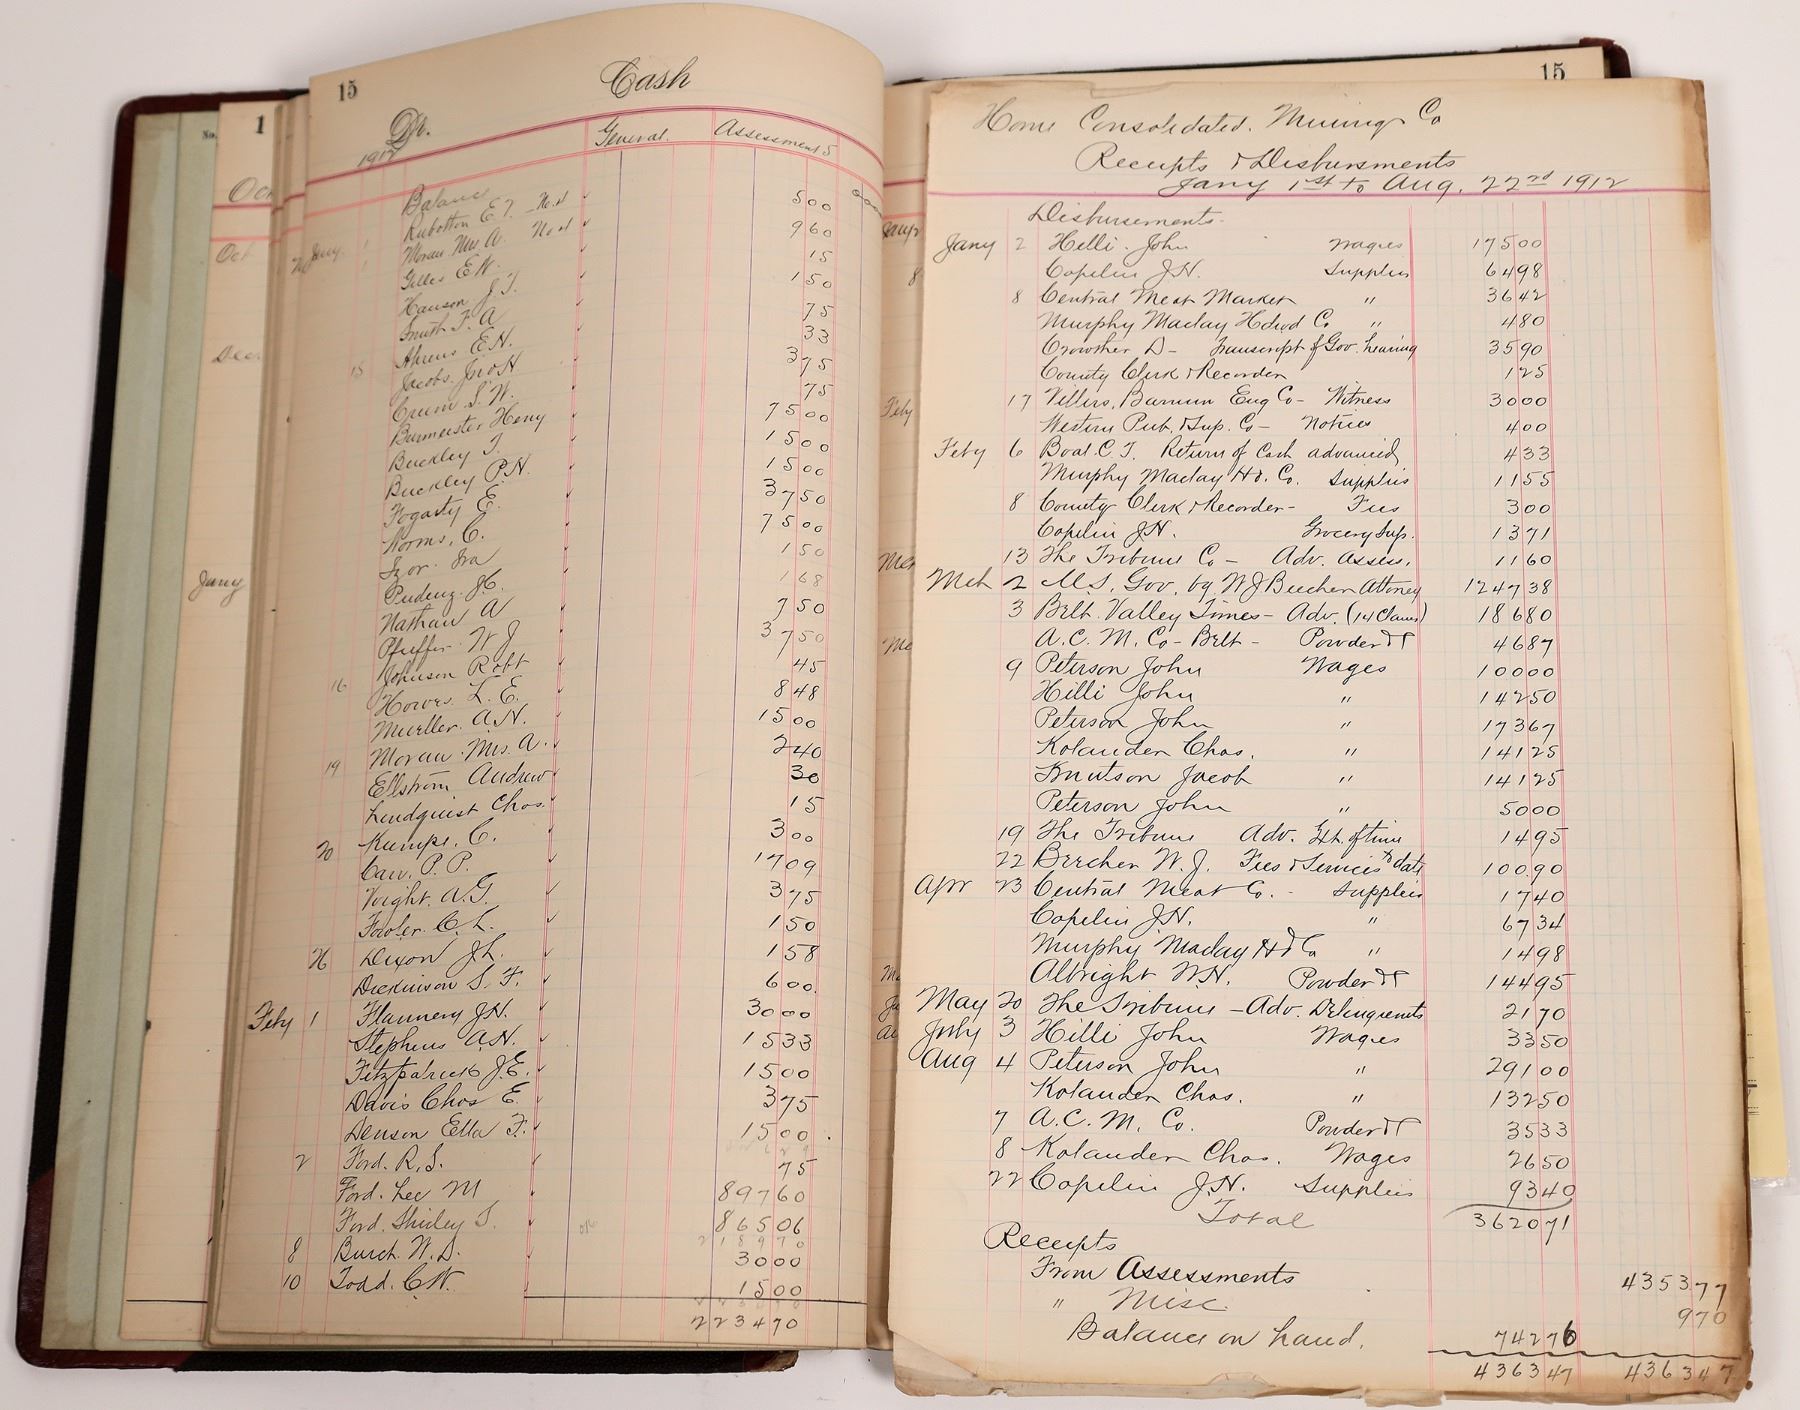 No.
1
Oct
Oct
Dec.
Jany
15
Cash
Dr.
General.
Assessments
1912
Balance 500
Rubottom E.T. No 1 960
Jany. 1 Moran Mrs A. No 1 15
1 Gilles E.W. 150
Hanson J.T. 75
Smith F. A 33
Ahrens E.H. 375
15 Jacobs. Jno H 75
Crum S. W. 7500
Burmeister Heny 1500
Buckley T. 1500
Buckley P.H. 3750
Fogarty E. 7500
Norms, C. 150
Izor. Ira 168
Pudenz. J.C. 750
Nathan A 3750
Pfuffer. W J 45
16 Johnson Robt 848
Howes L. E. 1500
Mueller. A.H. 240
19 Moran. Mrs. A. 30
Ellstrom Andrew 15
Lindquist Chos. 300
20 Kumpe. C. 1709
Carr. P. P. 375
Voight. A.G. 150
Fowler. C. L. 158
26 Dixon J.L. 600.
Dickinson S. F. 3000
Feby 1 Flannery J.H. 1533
Stephens A.H. 1500
Fitzpatrick J.E. 375
Davis Chos E. 1500
Denson Etta F.
2 Ford. R. S. 75
Ford. Lee M 89760
Ford. Shirley S. 86506
218970
8 Burch. W. D. 3000
10 Todd. C.W. 1500
223470
15
Jany
8
Feby
Home Consolidated. Mining Co
Receipts & Disbursments
Jany 1st to Aug. 22nd 1912
Disbursements.
Jany 2 Hilli. John Wages 17500
Copelin J.H. Supplies 6498
8 Central Meat Market " 3642
Murphy Maclay Hdwd Co " 480
Crowther D - Transcript of Gov. hearing 3590
County Clerk & Recorder 125
17 Villers, Barnum Eng Co - Witness 3000
Western Pub. & Sup. Co - Notices 400
Feby 6 Boal C. T. Return of Cash advanced 433
Murphy Maclay Hd. Co. Supplies 1155
8 County Clerk & Recorder - Fees 300
Copelin J.H. Grocery Sup. 1371
13 The Tribune Co - Adv. Assess. 1160
Mch 2 U.S. Gov. by W J Beecher Attorney 124738
3 Belt Valley Times - Adv. (14 Claims) 18680
A.C. M. Co - Belt - Powder &c 4687
9 Peterson John Wages 10000
Hilli John " 14250
Peterson John " 17367
Kolander Chas. " 14125
Knutson Jacob " 14125
Peterson John " 5000
19 The Tribune Adv. Ext. of time 1495
22 Beecher W. J. Fees & Services to date 10090
Apr 23 Central Meat Co. - Supplies 1740
Copelin J.H. " 6734
Murphy Maclay Hd Co " 1498
Albright W.H. Powder &c 14495
May 20 The Tribune - Adv. Delinquents 2170
July 3 Hilli John Wages 3350
Aug 4 Peterson John " 29100
Kolander Chas. " 13250
7 A.C. M. Co. Powder &c 3533
8 Kolander Chas. Wages 2650
22 Copelin J.H. Supplies 9340
Total 362071
Receipts
From Assessments 435377
" Misc. 970
Balance on hand. 74276
436347 436347